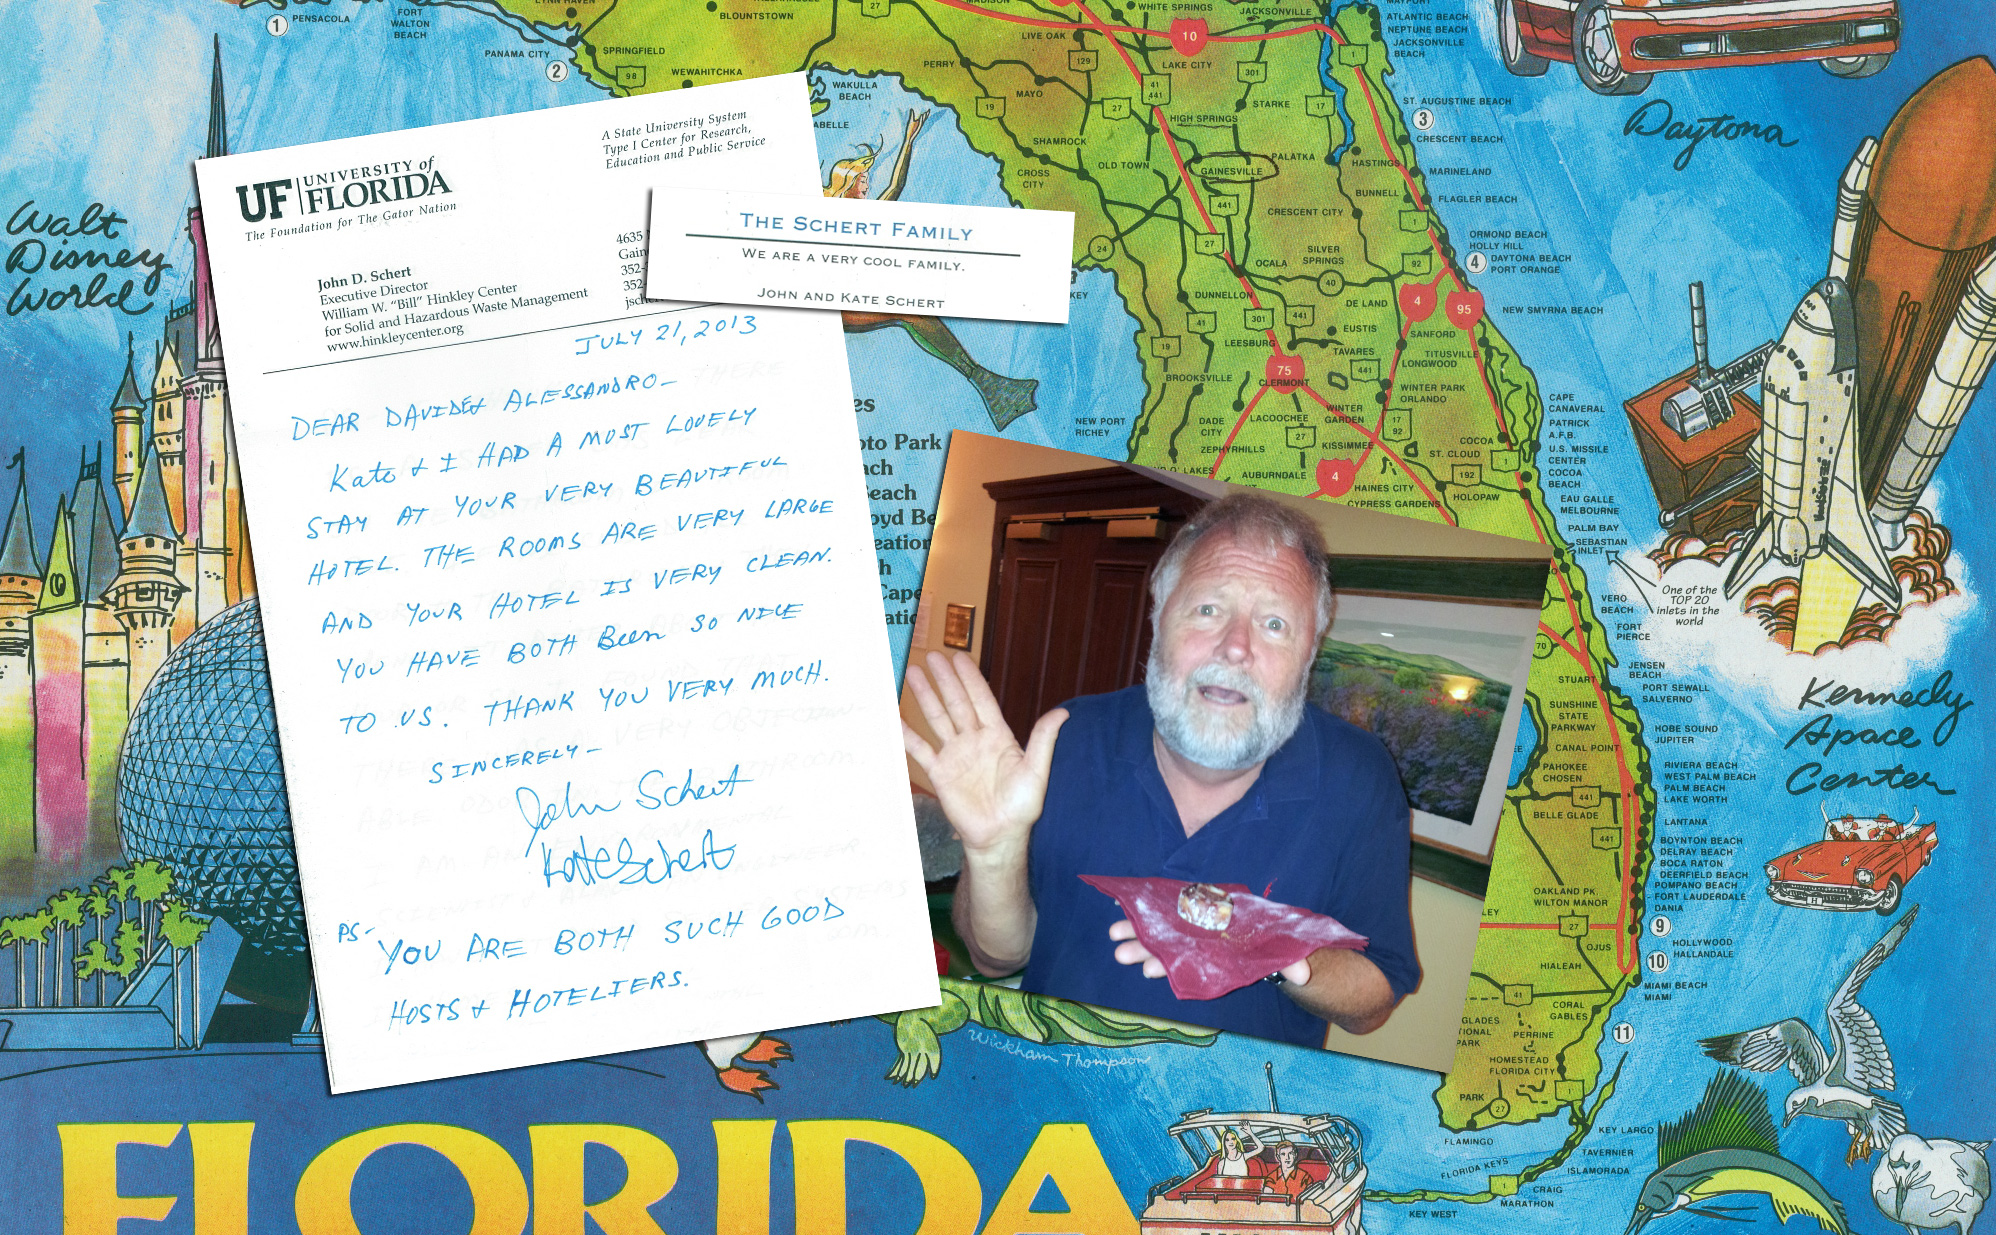 UF UNIVERSITY of
FLORIDA
The Foundation for The Gator Nation
A State University System
Type I Center for Research,
Education and Public Service
John D. Schert
Executive Director
William W. "Bill" Hinkley Center
for Solid and Hazardous Waste Management
www.hinkleycenter.org
4635
Gain
352-
352
jsche
THE SCHERT FAMILY
WE ARE A VERY COOL FAMILY.
JOHN AND KATE SCHERT
JULY 21, 2013
DEAR DAVIDE & ALESSANDRO-
Kate & I HAD A MOST LOVELY
STAY AT YOUR VERY BEAUTIFUL
HOTEL. THE ROOMS ARE VERY LARGE
AND YOUR HOTEL IS VERY CLEAN.
YOU HAVE BOTH Been SO NICE
TO US. THANK YOU VERY MUCH.
SINCERELY-
John Schert
Kate Schert
PS- YOU ARE BOTH SUCH GOOD
HOSTS & HOTELIERS.
Walt
Disney
World
FLORIDA
Wickham Thompson
Daytona
Kennedy
Space
Center
One of the
TOP 20
inlets in the
world
1
PENSACOLA
FORT
WALTON
BEACH
PANAMA CITY
2
SPRINGFIELD
98
WEWAHITCHKA
BLOUNTSTOWN
27
WAKULLA
BEACH
ABELLE
WHITE SPRINGS
JACKSONVILLE
10
LIVE OAK
LAKE CITY
PERRY
129
MAYO
19
27
41
441
301
STARKE
17
1
HIGH SPRINGS
SHAMROCK
OLD TOWN
CROSS
CITY
GAINESVILLE
PALATKA
HASTINGS
BUNNELL
CRESCENT CITY
441
27
24
SILVER
SPRINGS
OCALA
92
40
DE LAND
DUNNELLON
441
301
41
EUSTIS
4
95
SANFORD
LEESBURG
TAVARES
TITUSVILLE
LONGWOOD
19
75
441
BROOKSVILLE
CLERMONT
WINTER PARK
ORLANDO
NEW PORT
RICHEY
DADE
CITY
LACOOCHEE
WINTER
GARDEN
17
92
27
KISSIMMEE
COCOA
ZEPHYRHILLS
ST. CLOUD
1
AUBURNDALE
4
192
HAINES CITY
HOLOPAW
CYPRESS GARDENS
ATLANTIC BEACH
NEPTUNE BEACH
JACKSONVILLE
BEACH
ST. AUGUSTINE BEACH
3
CRESCENT BEACH
MARINELAND
FLAGLER BEACH
ORMOND BEACH
HOLLY HILL
4
DAYTONA BEACH
PORT ORANGE
NEW SMYRNA BEACH
CAPE
CANAVERAL
PATRICK
A.F.B.
U.S. MISSILE
CENTER
COCOA
BEACH
EAU GALLE
MELBOURNE
PALM BAY
SEBASTIAN
INLET
VERO
BEACH
FORT
PIERCE
70
JENSEN
BEACH
STUART
PORT SEWALL
SALVERNO
SUNSHINE
STATE
PARKWAY
HOBE SOUND
JUPITER
CANAL POINT
PAHOKEE
CHOSEN
RIVIERA BEACH
WEST PALM BEACH
PALM BEACH
LAKE WORTH
441
BELLE GLADE
LANTANA
441
BOYNTON BEACH
DELRAY BEACH
BOCA RATON
DEERFIELD BEACH
POMPANO BEACH
FORT LAUDERDALE
DANIA
OAKLAND PK
WILTON MANOR
27
9
OJUS
HOLLYWOOD
HALLANDALE
10
HIALEAH
MIAMI BEACH
MIAMI
41
CORAL
GABLES
11
PERRINE
HOMESTEAD
FLORIDA CITY
PARK
27
1
FLAMINGO
KEY LARGO
TAVERNIER
FLORIDA KEYS
ISLAMORADA
1
CRAIG
MARATHON
KEY WEST